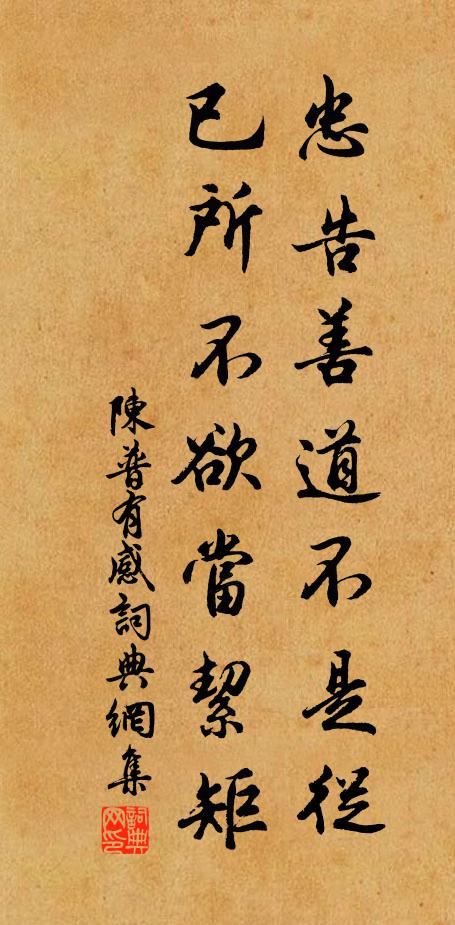 忠告善道不是從
已所不欲當絜矩
陳普有感詞典網集
詞典
网印